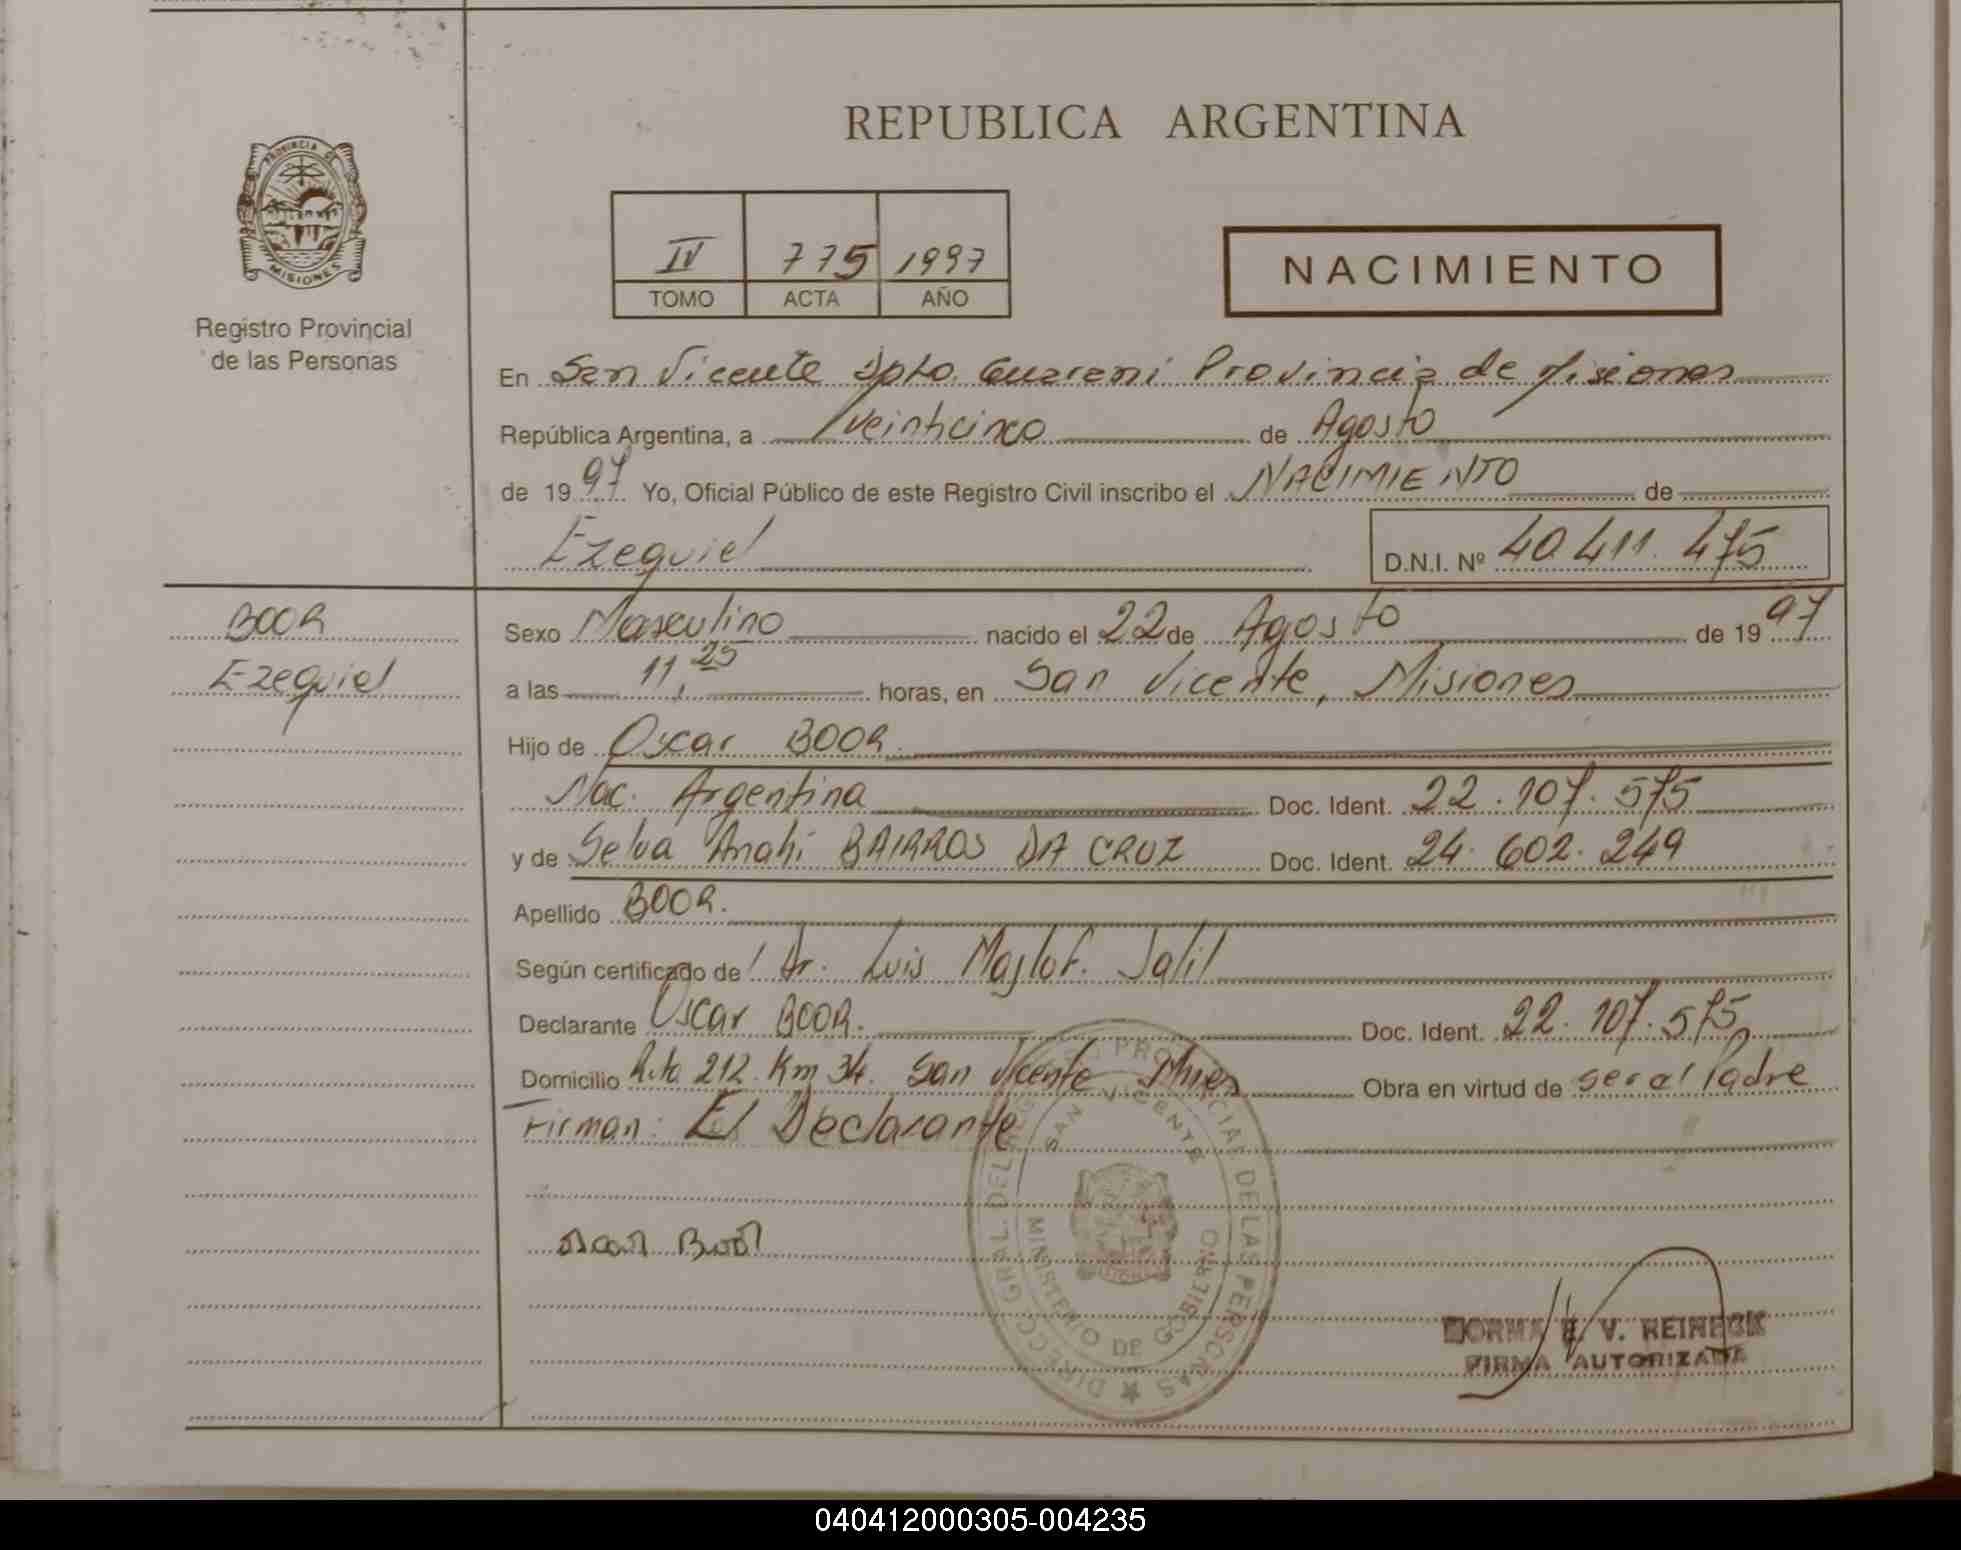 REPUBLICA ARGENTINA
PROVINCIA DE
MISIONES
Registro Provincial
de las Personas
IV 775 1997
TOMO ACTA AÑO
NACIMIENTO
En San Vicente Dpto. Guarani Provincia de Misiones
República Argentina, a Veinticinco de Agosto
de 1997 Yo, Oficial Público de este Registro Civil inscribo el NACIMIENTO de
Ezequiel D.N.I. Nº 40 411. 475
BOOR
Ezequiel
Sexo Masculino nacido el 22 de Agosto de 1997
a las 11,25 horas, en San Vicente, Misiones
Hijo de Oscar BOOR.
Nac. Argentina Doc. Ident. 22.107.575
y de Selva Anahi BAIRROS DA CRUZ Doc. Ident. 24.602.249
Apellido BOOR.
Según certificado de Dr. Luis Majlof. Jalil
Declarante Oscar BOOR. Doc. Ident. 22.107.575
Domicilio Ruta 212. Km 34. San Vicente Mnes Obra en virtud de ser el Padre
Firman: El Declarante
Oscar Boor
DIRECC. GRAL. DEL REGISTRO PROVINCIAL DE LAS PERSONAS
SAN VICENTE
MINISTERIO DE GOBIERNO
NORMA E. V. REINECK
FIRMA AUTORIZADA
040412000305-004235